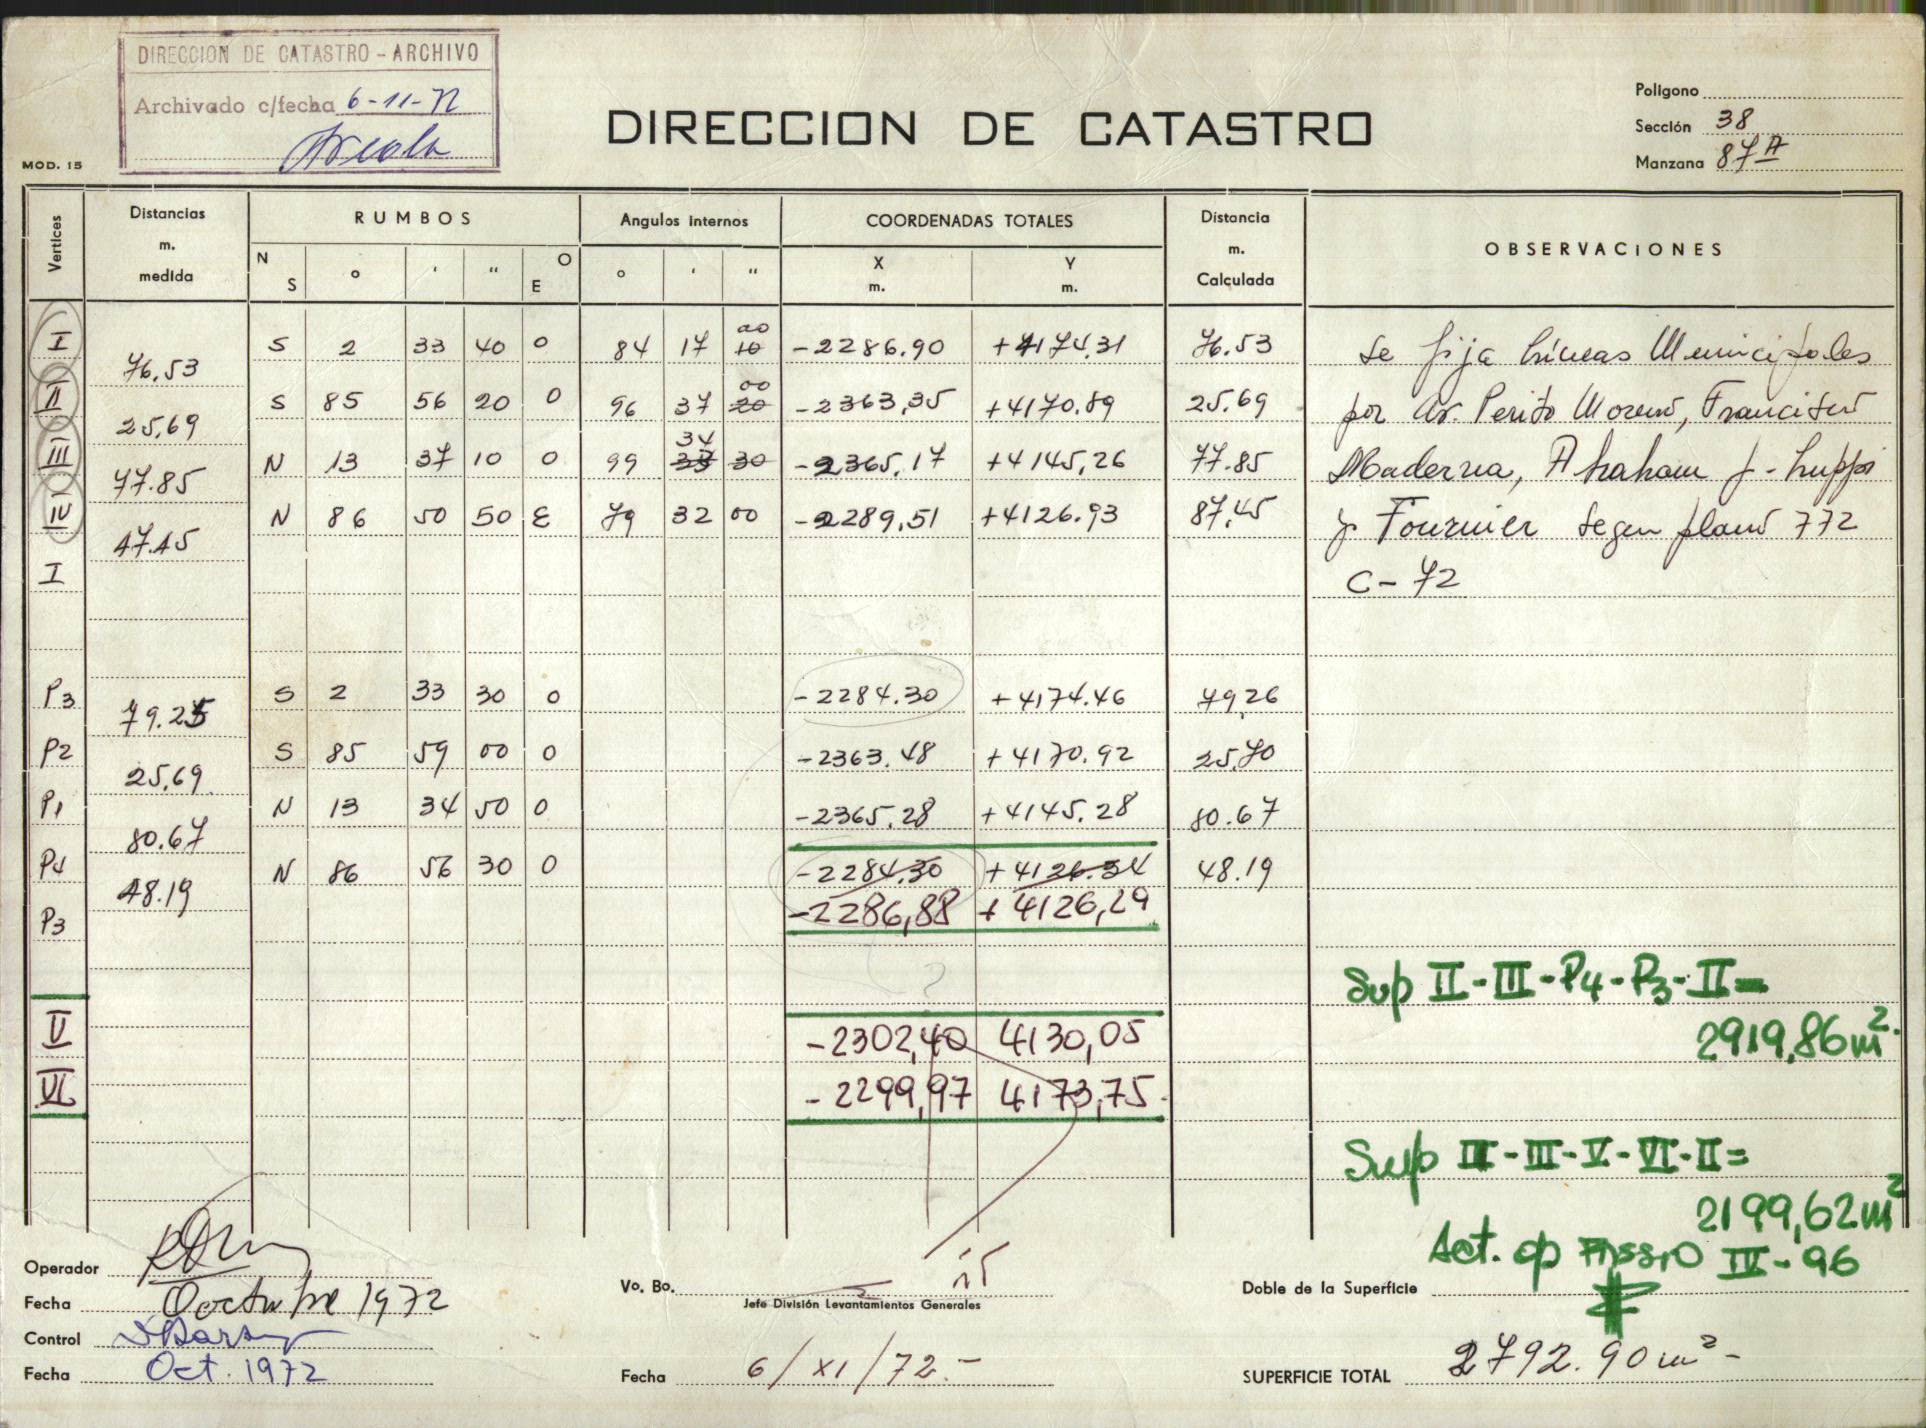 DIRECCION DE CATASTRO - ARCHIVO
Archivado c/fecha 6-11-72
MOD. 15
DIRECCION DE CATASTRO
Poligono
Sección 38
Manzana 87A
Vertices
Distancias m. medida
RUMBOS
Angulos internos
COORDENADAS TOTALES
Distancia m. Calculada
OBSERVACIONES
N S ° ' " O E ° ' " X m. Y m.
I S 2 33 40 O 84 17 00 10 -2286.90 +4174.31 76.53
76.53
II S 85 56 20 O 96 37 00 20 -2363,35 +4170.89 25.69
25,69
III N 13 37 10 O 99 34 33 30 -2365,17 +4145,26 77.85
77.85
IV N 86 50 50 E 79 32 00 -2289,51 +4126.93 87,45
47.45
I
Se fija Líneas Municipales
por Av. Perito Moreno, Francisco
Maderna, Abraham J. Luppi
y Fournier segun plano 772
C-72
P3 S 2 33 30 O -2284.30 +4174.46 79,26
79.25
P2 S 85 59 00 O -2363.48 +4170.92 25,70
25,69
P1 N 13 34 50 O -2365.28 +4145.28 80.67
80.67
P4 N 86 56 30 O -2284.30 +4126.34 48.19
48.19
-2286,88 +4126,29
P3
?
Sup II-III-P4-P3-II=
2919,86m2.
V -2302,40 4130,05
VI -2299,97 4173,75
Sup II-III-V-VI-II=
2199,62m2
Act. op IV-96
Operador
Fecha Octubre 1972
Control
Fecha Oct. 1972
Vo. Bo.
Jefe División Levantamientos Generales
Fecha 6/XI/72.-
Doble de la Superficie
SUPERFICIE TOTAL 2792.90 m2-